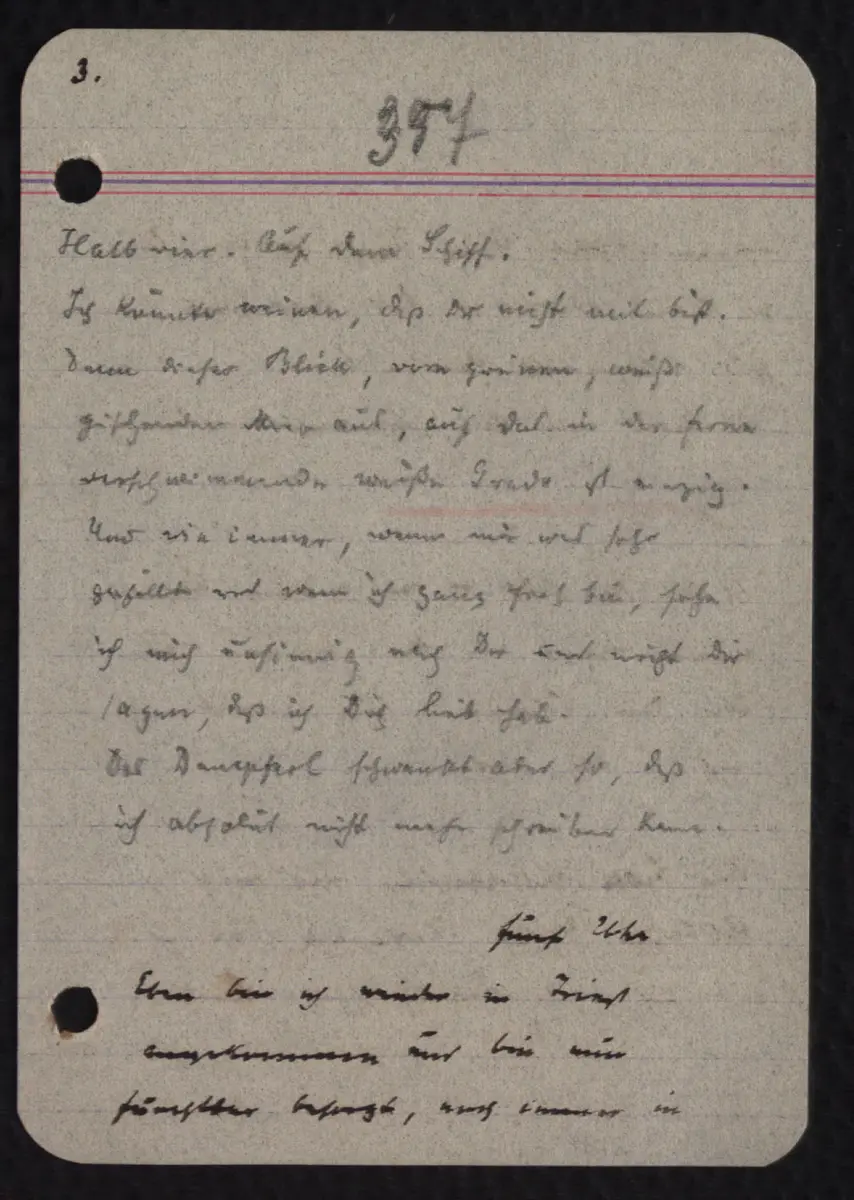 3.
357
Halb vier. Auf dem Schiff.
Ich könnte weinen, daß Du nicht mit bist.
Denn dieser Blick, vom grünen, weiß
gischenden Meer aus, auf das in der Ferne
verschwimmende weiße Grado ist einzig.
Und wie immer, wenn mir was sehr
gefällt und wenn ich ganz froh bin, sehne
ich mich unsinnig nach Dir und möcht Dir
sagen, daß ich Dich lieb hab.
Das Dampferl schwankt aber so, daß
ich absolut nicht mehr schreiben kann.
fünf Uhr
Eben bin ich wieder in Triest
angekommen und bin nun
furchtbar besorgt, noch immer in